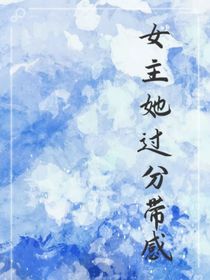 女主她过分带感